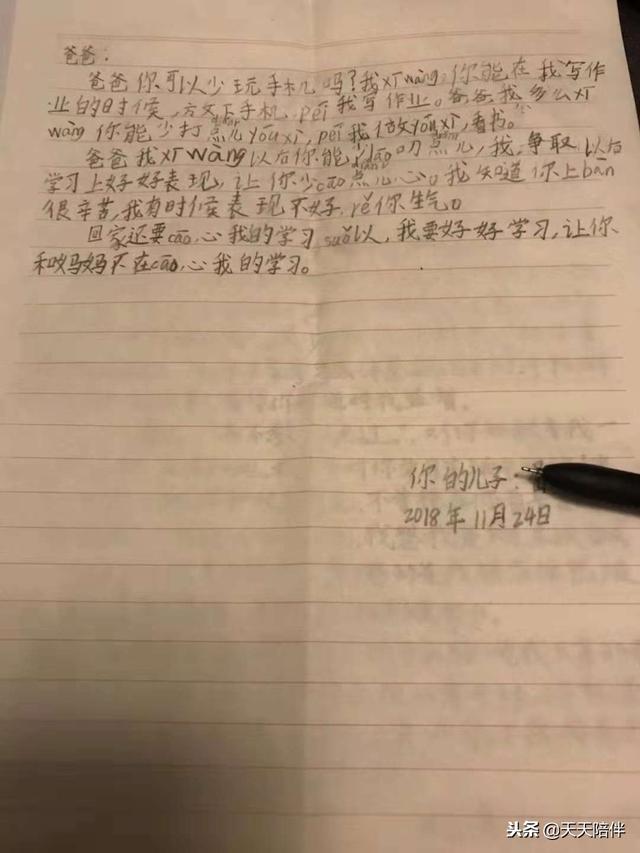 爸爸：
爸爸你可以少玩手机吗？我xīwàng你能在我写作
业的时候，方文下手机péi我写作业。爸爸我多么xī
wàng你能少打点儿yóuxì，péi我做yóuxì，看书。
爸爸我xīwàng以后你能少 点儿，我争取以后
学习上好好表现，让你少cāo点儿心。我知道你上bān
很辛苦，我有时候表现不好，rě你生气。
回家还要cāo心我的学习suǒ以，我要好好学习，让你
和妈妈不在cāo心我的学习。
你的儿子：
2018年11月24日
头条 @天天陪伴